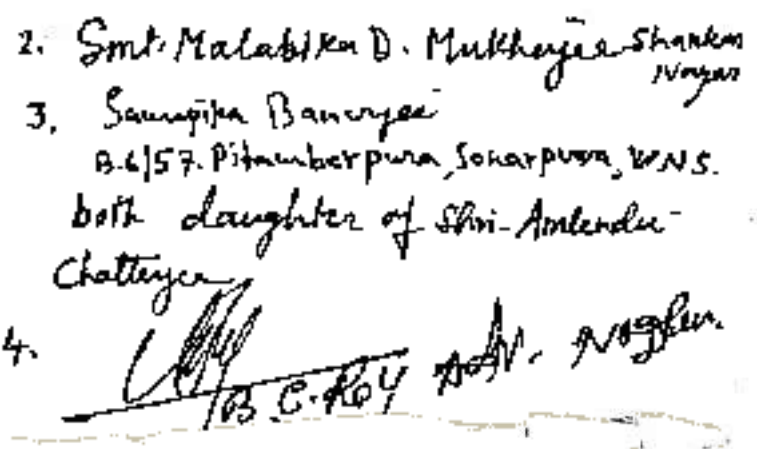 2. Smt. Malabika D. Mukherjee Shankar
Nagar
3. Banerjee
B.6/57. Pitamberpura, Sonarpura, VNS.
both daughter of Shri. Amlendu
Chatterjee
4.
B. C. ROY Adv.